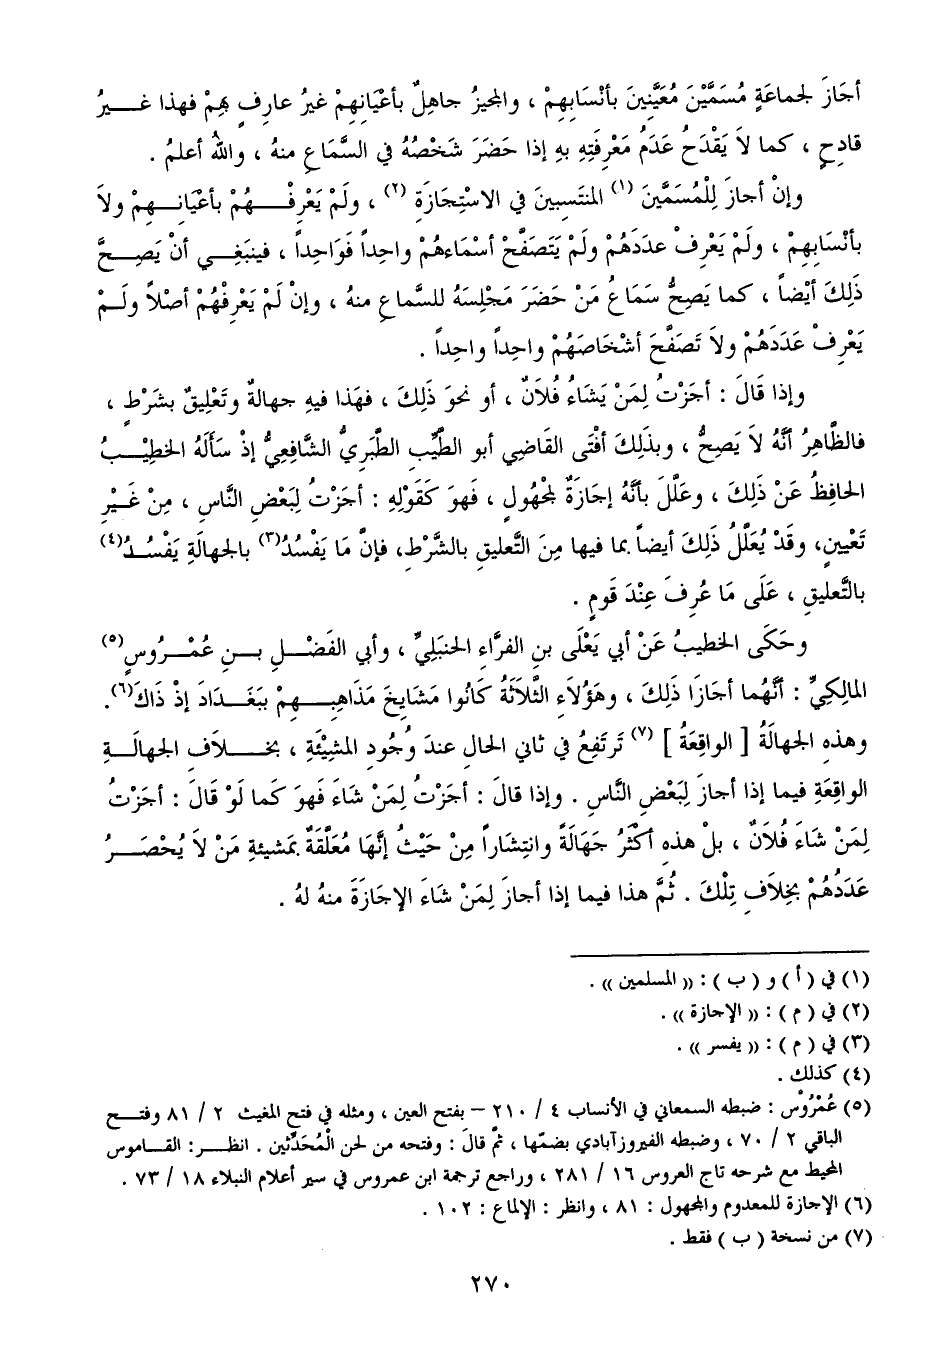 أجَازَ لجماعَةٍ مُسَمَّيْنَ مُعَيَّنِينَ بأنْسَابِهِمْ ، والمجيزُ جاهِلٌ بأعْيَانِهِمْ غيرُ عارِفٍ بِهِمْ فهذا غَــيرُ
قادِحٍ ، كما لاَ يَقْدَحُ عَدَمُ مَعْرِفَتِهِ بِهِ إذا حَضَرَ شَخْصُهُ في السَّمَاعِ منهُ ، واللهُ أعلمُ .
وإنْ أجازَ لِلْمُسَمَّيْنَ (١) المنتَسِبينَ في الاسْتِجَازَةِ (٢) ، ولَمْ يَعْرِفْــهُمْ بأعْيَانِــهِمْ ولاَ
بأنْسَابِهِمْ ، ولَمْ يَعْرِفْ عدَدَهُمْ ولَمْ يَتَصَفَّحْ أسْمَاءهُمْ واحِداً فَوَاحِداً ، فينبَغِــي أنْ يَصِــحَّ
ذَلِكَ أيْضاً ، كما يَصِحُّ سَمَاعُ مَنْ حَضَرَ مَجْلِسَهُ للسَّماعِ منهُ ، وإنْ لَمْ يَعْرِفْهُمْ أصْلاً ولَــمْ
يَعْرِفْ عَدَدَهُمْ ولاَ تَصَفَّحَ أشْخَاصَهُمْ واحِداً واحِداً .
وإذا قَالَ : أجَزْتُ لِمَنْ يَشَاءُ فُلاَنٌ ، أو نحوَ ذَلِكَ ، فهَذا فيهِ جهالةٌ وتَعْلِيقٌ بشَرْطٍ ،
فالظَّاهِرُ أنَّهُ لاَ يَصِحُّ ، وبذَلِكَ أفْتَى القَاضِي أبو الطَّيِّبِ الطَّبَرِيُّ الشَّافِعِيُّ إذْ سَألَهُ الخَطِيْــبُ
الحافِظُ عَنْ ذَلِكَ ، وعَلَّلَ بأنَّهُ إجَازَةٌ لمجْهُولٍ ، فَهوَ كَقَوْلِهِ : أجَزْتُ لِبَعْضِ النَّاسِ ، مِنْ غَــيْرِ
تَعْيينٍ، وقَدْ يُعَلَّلُ ذَلِكَ أيضاً بما فيها مِنَ التَّعليقِ بالشَّرْطِ، فإنَّ مَا يَفْسُدُ(٣) بالجهالَةِ يَفْسُــدُ(٤)
بالتَّعليقِ ، عَلَى مَا عُرِفَ عِنْدَ قَومٍ .
وحَكَى الخطيبُ عَنْ أبي يَعْلَى بنِ الفَرَّاءِ الحنبَلِيِّ ، وأبي الفَضْــلِ بــنِ عُمْــرُوسٍ(٥)
المالِكِيِّ : أنَّهُما أجَازَا ذَلِكَ ، وهَؤُلاَءِ الثَّلاَثَةُ كَانُوا مَشَايخَ مَذَاهِبِــهِمْ ببَغْــدَادَ إذْ ذَاكَ(٦).
وهذهِ الجهالَةُ [ الواقِعَةُ ] (٧) تَرتَفِعُ في ثاني الحالِ عندَ وُجُودِ المشِيْئَةِ ، بخــلاَفِ الجهالَــةِ
الواقِعَةِ فيما إذا أجازَ لِبَعْضِ النَّاسِ . وإذا قالَ : أجَزْتُ لِمَنْ شاءَ فَهوَ كَما لَوْ قَالَ : أجَزْتُ
لِمَنْ شَاءَ فُلاَنٌ ، بلْ هذهِ أكْثَرُ جَهَالَةً وانتِشَاراً مِنْ حَيْثُ إنَّهَا مُعَلَّقَةٌ بمَشيئةِ مَنْ لاَ يُحْصَــرُ
عَدَدُهُمْ بخِلاَفِ تِلْكَ . ثُمَّ هذا فيما إذا أجازَ لِمَنْ شَاءَ الإجَازَةَ منهُ لهُ .
(١) في ( أ ) و ( ب ) : (( المسلمين )) .
(٢) في ( م ) : (( الإجازة )) .
(٣) في ( م ) : (( يفسر )) .
(٤) كذلك .
(٥) عُمْرُوْس : ضبطه السمعاني في الأنساب ٤ / ٢١٠ – بفتح العين ، ومثله في فتح المغيث ٢ / ٨١ وفتــح
الباقي ٢ / ٧٠ ، وضبطه الفيروزآبادي بضمّها ، ثمّ قال : وفتحه من لحن الْمُحَدِّثين . انظــر : القــاموس
المحيط مع شرحه تاج العروس ١٦ / ٢٨١ ، وراجع ترجمة ابن عمروس في سير أعلام النبلاء ١٨ / ٧٣ .
(٦) الإجازة للمعدوم والمجهول : ٨١ ، وانظر : الإلماع : ١٠٢ .
(٧) من نسخة ( ب ) فقط .
٢٧٠